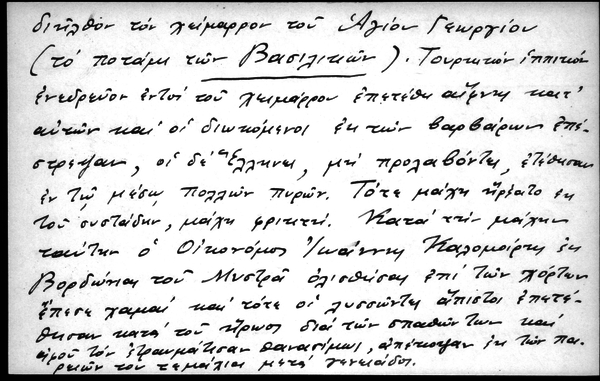 διῆλθον τόν χείμαρρον τοῦ Ἁγίου Γεωργίου
(τό ποτάμι τῶν Βασιλικῶν). Τουρκικόν ἱππικόν
ἐνεδρεῦον ἐντός τοῦ χειμάρρου ἐπετέθη αἴφνης κατ'
αὐτῶν καί οἱ διωκόμενοι ἐκ τῶν βαρβάρων ἐπέ-
στρεψαν, οἱ δέ Ἕλληνες, μή προλαβόντες, ἐτέθησαν
ἐν τῷ μέσῳ πολλῶν πυρῶν. Τότε μάχη ἤρξατο ἐκ
τοῦ συστάδην, μάχη φρικτή. Κατά τήν μάχην
ταύτην ὁ Οἰκονόμος Ἰωάννης Καλομοίρης ἐκ
Βορδώνιας τοῦ Μυστρᾶ ὀλισθήσας ἐπί τῶν χόρτων
ἔπεσε χαμαί καί τότε οἱ λυσσῶντες ἄπιστοι ἐπετέ-
θησαν κατά τοῦ ἥρωος διά τῶν σπαθῶν των καί
ἀφοῦ τόν ἐτραυμάτισαν θανασίμως, ἀπέκοψαν ἐκ τῶν πα-
ρειῶν του τεμάχια μετά γενειάδος.